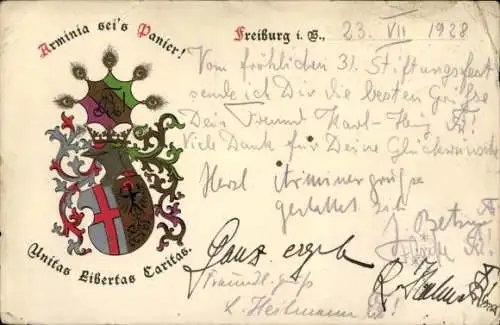 Arminia sei's Panier!
Freiburg i. B., 23. VII 1928
Vom fröhlichen 31. Stiftungsfest
sende ich Dir die besten Grüsse
Dein Freund Karl-Heinz
Viele Dank für Deine Glückwünsche
Herzl. Arminengrüsse
gestattet sich
Ganz ergeb.
Freundl. Gruß
L. Heilmann
Unitas Libertas Caritas.